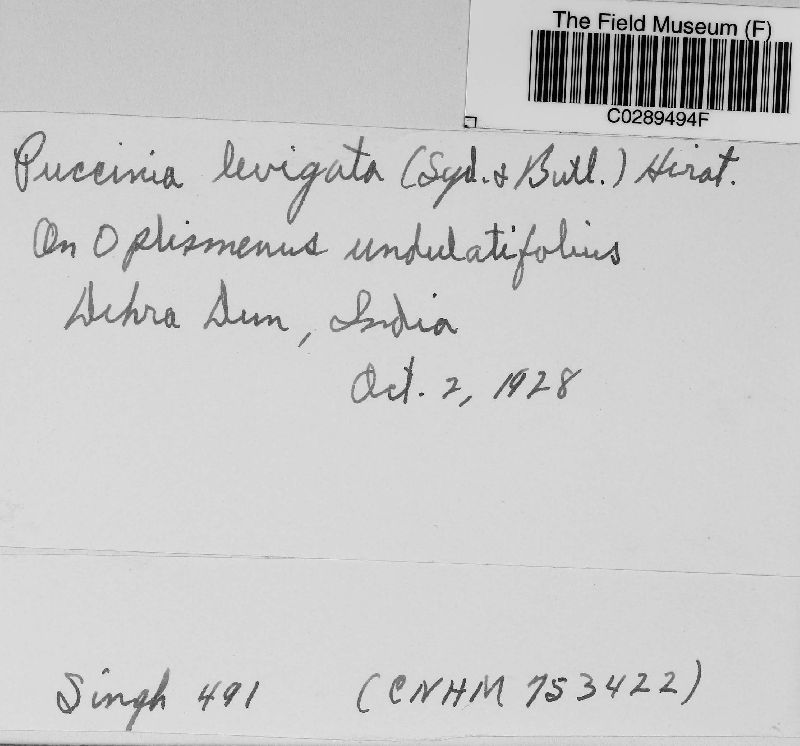 The Field Museum (F)
C0289494F
Puccinia levigata (Syd. & Butl.) Hirat.
On Oplismenus undulatifolius
Dehra Dun, India
Oct. 2, 1928
Singh 491 (CNHM 753422)